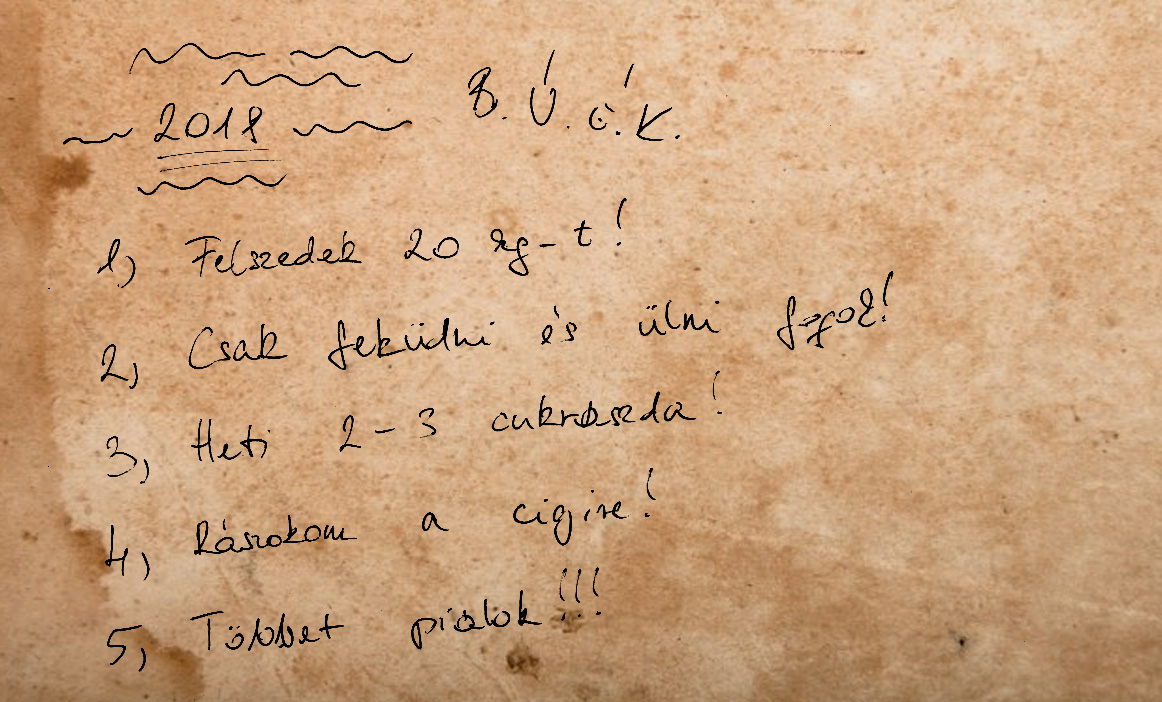 2018 B. Ú. É. K.
1) Felszedek 20 kg-t!
2, Csak feküdni és ülni fogok!
3, Heti 2-3 cukrászda!
4, Rászokom a cigire!
5, Többet pialok!!!